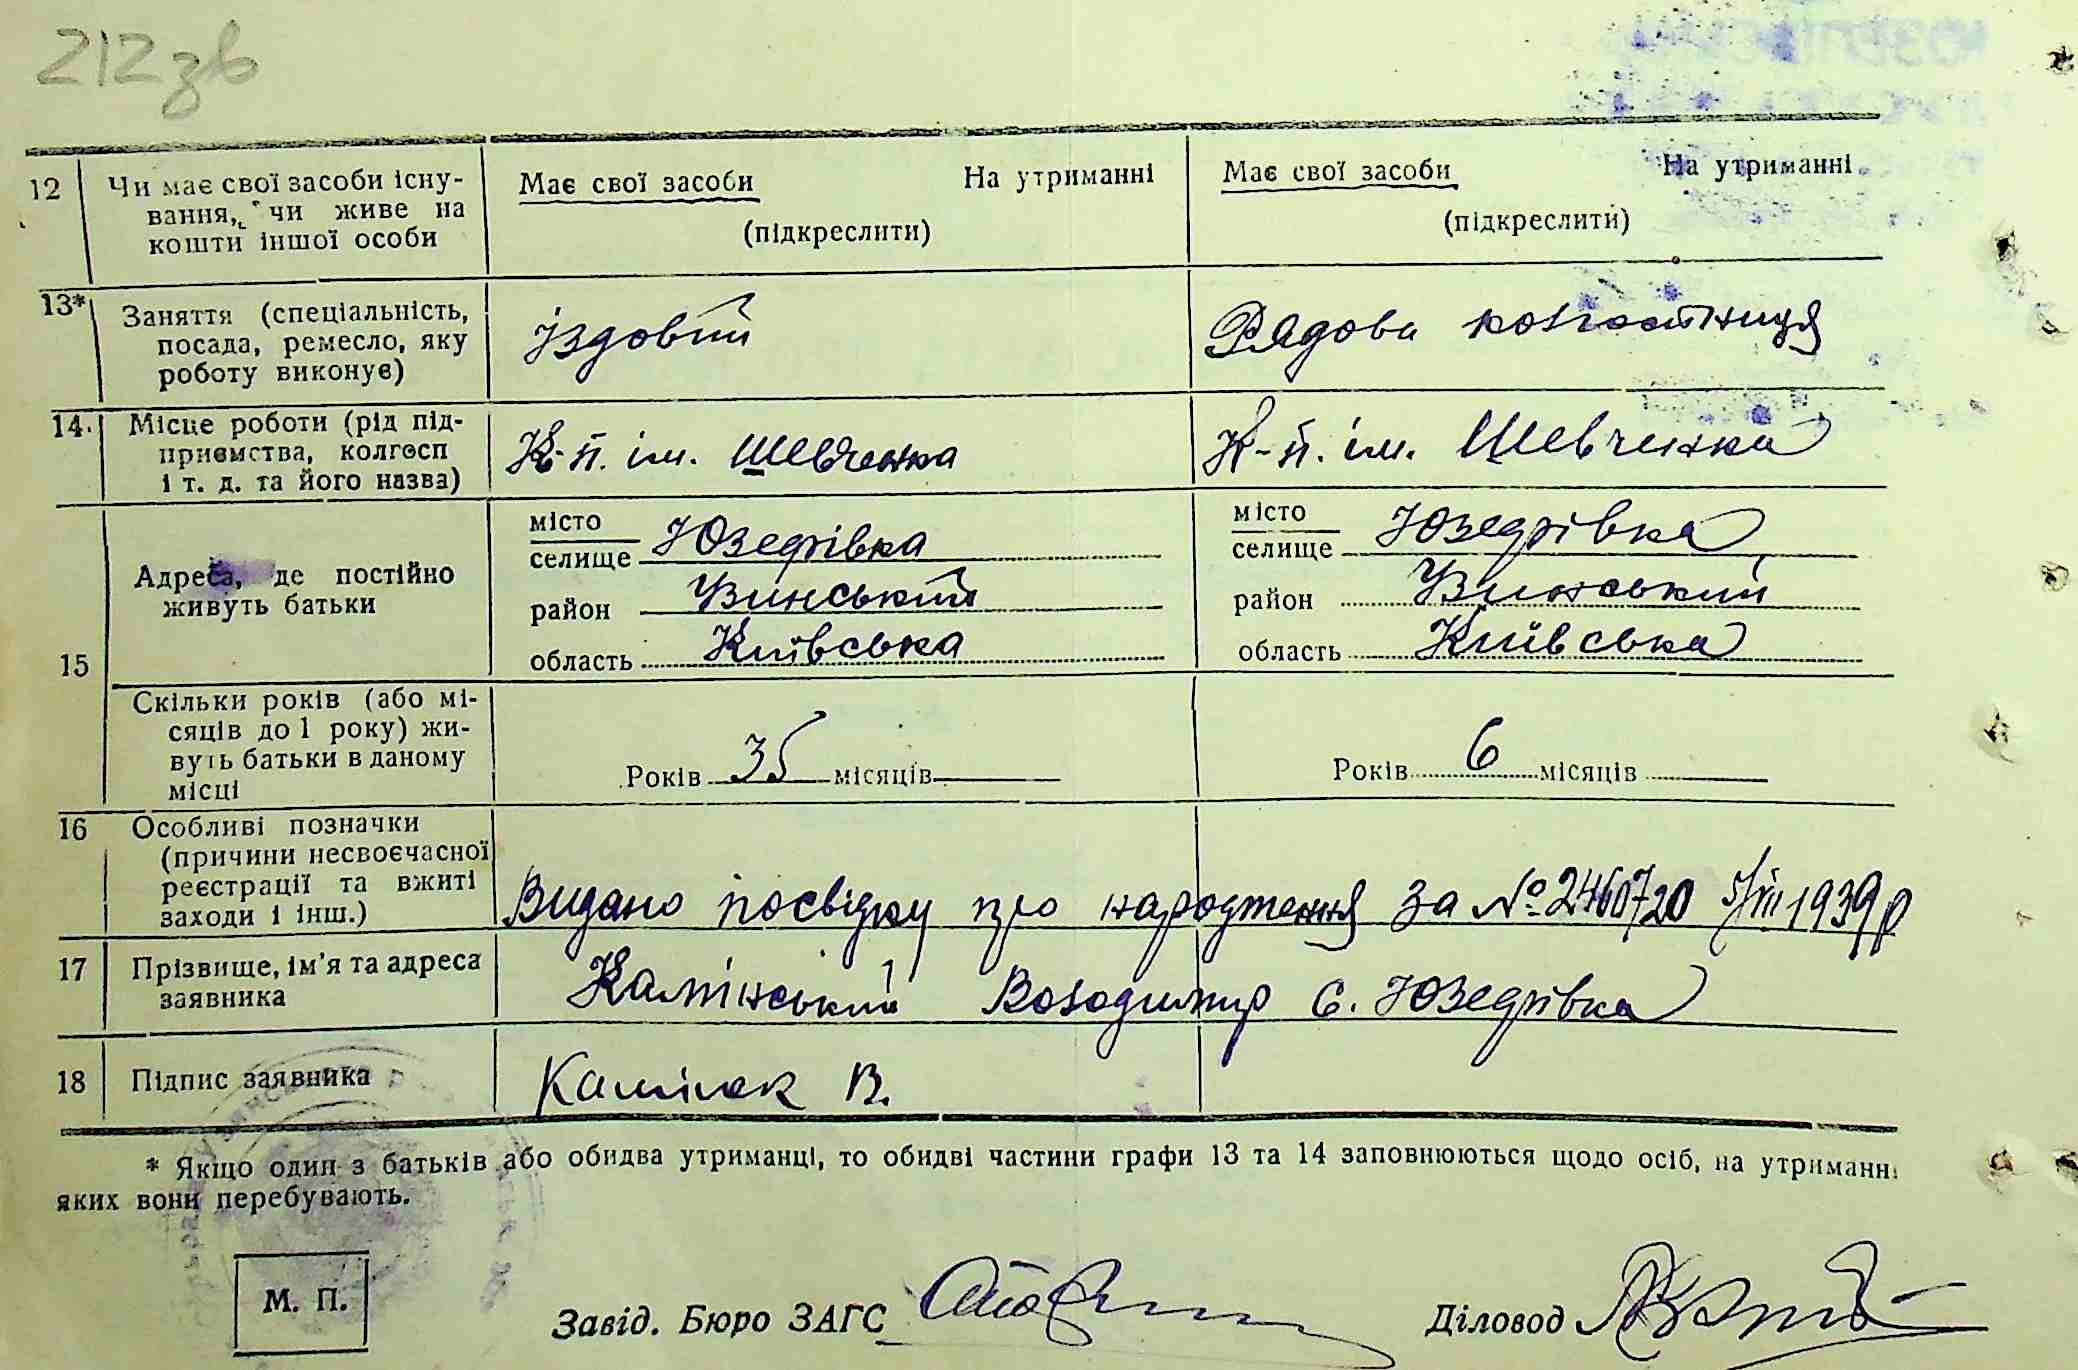 212 зв
12 Чи має свої засоби існу-
вання, чи живе на
кошти іншої особи
Має свої засоби На утриманні
(підкреслити)
Має свої засоби На утриманні
(підкреслити)
13* Заняття (спеціальність,
посада, ремесло, яку
роботу виконує)
Їздовий
Рядова колгоспниця
14. Місце роботи (рід під-
приємства, колгосп
і т. д. та його назва)
К-п. ім. Шевченка
К-п. ім. Шевченка
15
Адреса, де постійно
живуть батьки
місто
селище Юзефівка
район
область Київська
місто
селище Юзефівка
район
область Київська
Скільки років (або мі-
сяців до 1 року) жи-
вуть батьки в даному
місці
Років 35 місяців
Років 6 місяців
16 Особливі позначки
(причини несвоєчасної
реєстрації та вжиті
заходи і інш.)
Видано посвідку про народження за № 2460720 5/VIII 1939 р
17 Прізвище, ім'я та адреса
заявника
Камінський Володимир с. Юзефівка
18 Підпис заявника
В.
* Якщо один з батьків або обидва утриманці, то обидві частини графи 13 та 14 заповнюються щодо осіб, на утриманні
яких вони перебувають.
М. П.
Завід. Бюро ЗАГС
Діловод